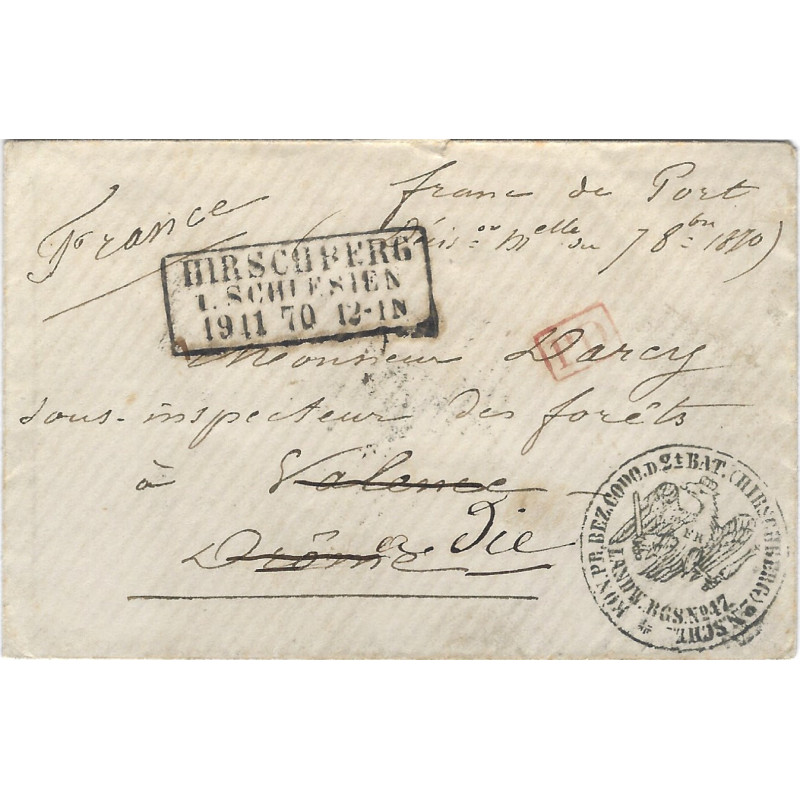 France
franc de Port
Décis.on Melle du 7 8bre 1870)
HIRSCHBERG
I. SCHLESIEN
19 11 70 12-1N
PD
Monsieur Darcy
sous-inspecteur des forêts
à Valence
a Die
Drôme
KÖN. PR. BEZ. CODO. D. 2t BAT. (HIRSCHBERG) 2 N. SCHL.
LANDW. RGS. No 47.